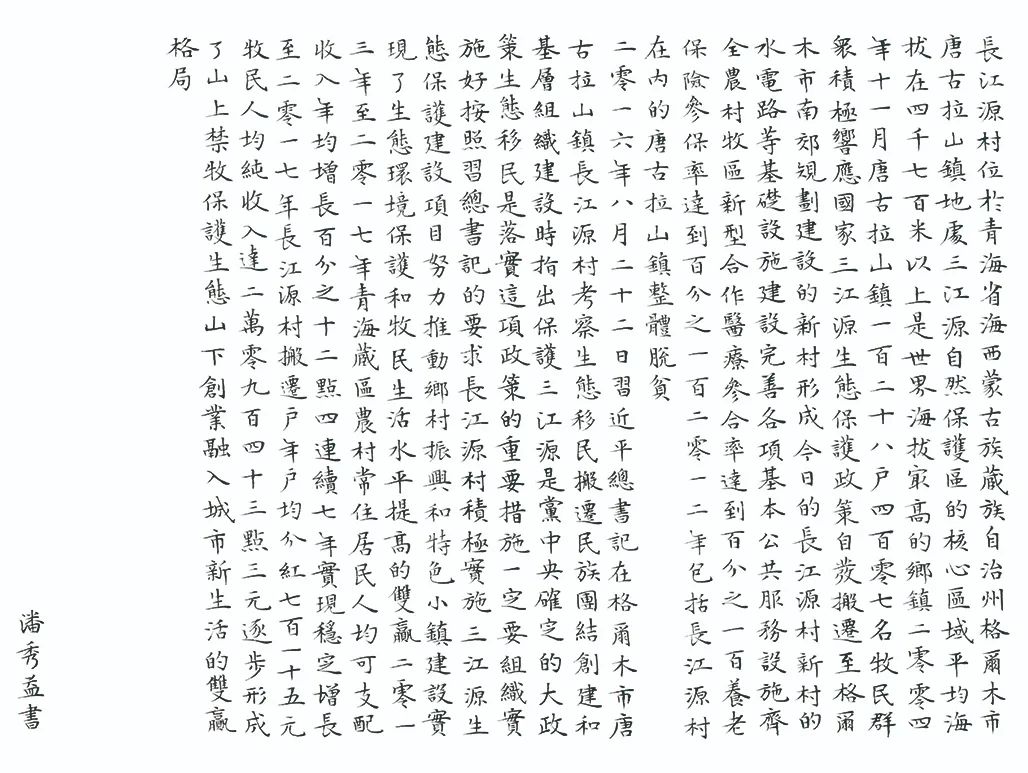 長江源村位於青海省海西蒙古族藏族自治州格爾木市
唐古拉山鎮地處三江源自然保護區的核心區域平均海
拔在四千七百米以上是世界海拔最高的鄉鎮二零零四
年十一月唐古拉山鎮一百二十八户四百零七名牧民群
眾積極響應國家三江源生態保護政策自發搬遷至格爾
木市南郊規劃建設的新村形成今日的長江源村新村的
水電路等基礎設施建設完善各項基本公共服務設施齊
全農村牧區新型合作醫療參合率達到百分之一百養老
保險參保率達到百分之一百二零一二年包括長江源村
在內的唐古拉山鎮整體脫貧
二零一六年八月二十二日習近平總書記在格爾木市唐
古拉山鎮長江源村考察生態移民搬遷民族團結創建和
基層組織建設時指出保護三江源是黨中央確定的大政
策生態移民是落實這項政策的重要措施一定要組織實
施好按照習總書記的要求長江源村積極實施三江源生
態保護建設項目努力推動鄉村振興和特色小鎮建設實
現了生態環境保護和牧民生活水平提高的雙贏二零一
三年至二零一七年青海藏區農村常住居民人均可支配
收入年均增長百分之十二點四連續七年實現穩定增長
至二零一七年長江源村搬遷户年户均分紅七百一十五元
牧民人均純收入達二萬零九百四十三點三元逐步形成
了山上禁牧保護生態山下創業融入城市新生活的雙贏
格局
潘秀益書